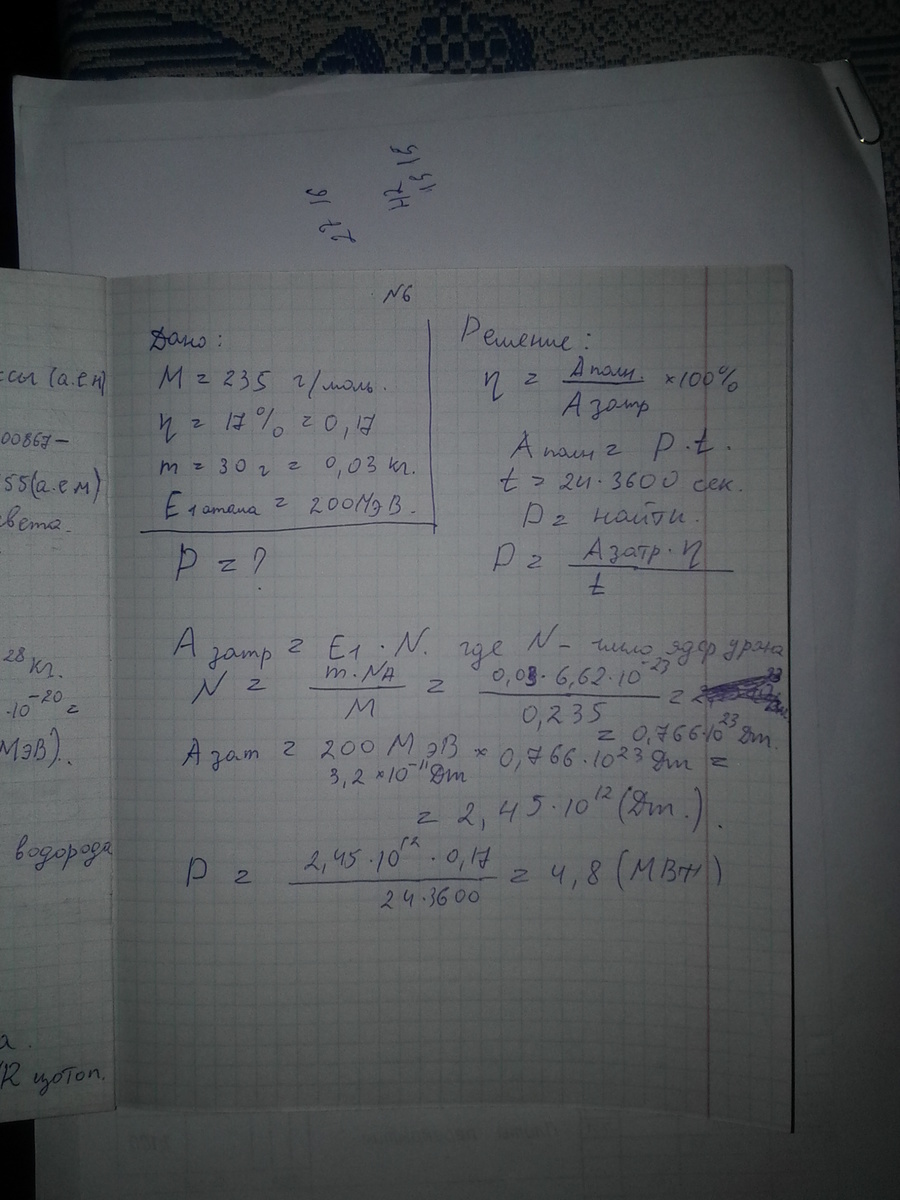 N6
Дано:
M = 235 г/моль.
η = 17% = 0,17
m = 30 г = 0,03 кг.
E1 атома = 200 МэВ.
P = ?
Решение:
η = Aполн. / Aзатр × 100%
Aполн = P · t.
t = 24 · 3600 сек.
P = найти.
P = Aзатр · η / t
A затр = E1 · N. где N - число ядер урана
N = m · NA / M = 0,03 · 6,62 · 10^-23 / 0,235 =
= 0,766 · 10^23 Дж.
A зат = 200 МэВ × 0,766 · 10^23 Дж =
3,2 × 10^-11 Дж
= 2,45 · 10^12 (Дж.).
P = 2,45 · 10^12 · 0,17 / 24 · 3600 = 4,8 (МВт)
ссы (а.е м)
00867-
55 (а.е м)
света.
28 кг.
· 10^-20 =
МэВ).
водорода
а.
изотоп.
16